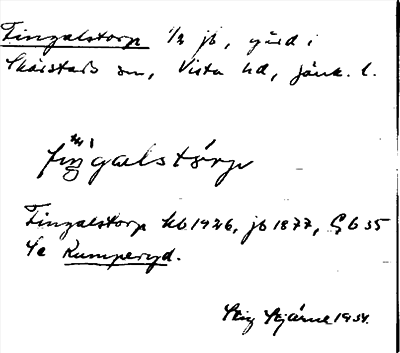 Fingalstorp 1/2 jb, gård i
Skärstads sn, Vista hd, Jönk. l.
fiŋgalstårp
Fingalstorp kb 1926, jb 1877, Gb 35
Se Rumperyd.
Stig Stjärne 1934.